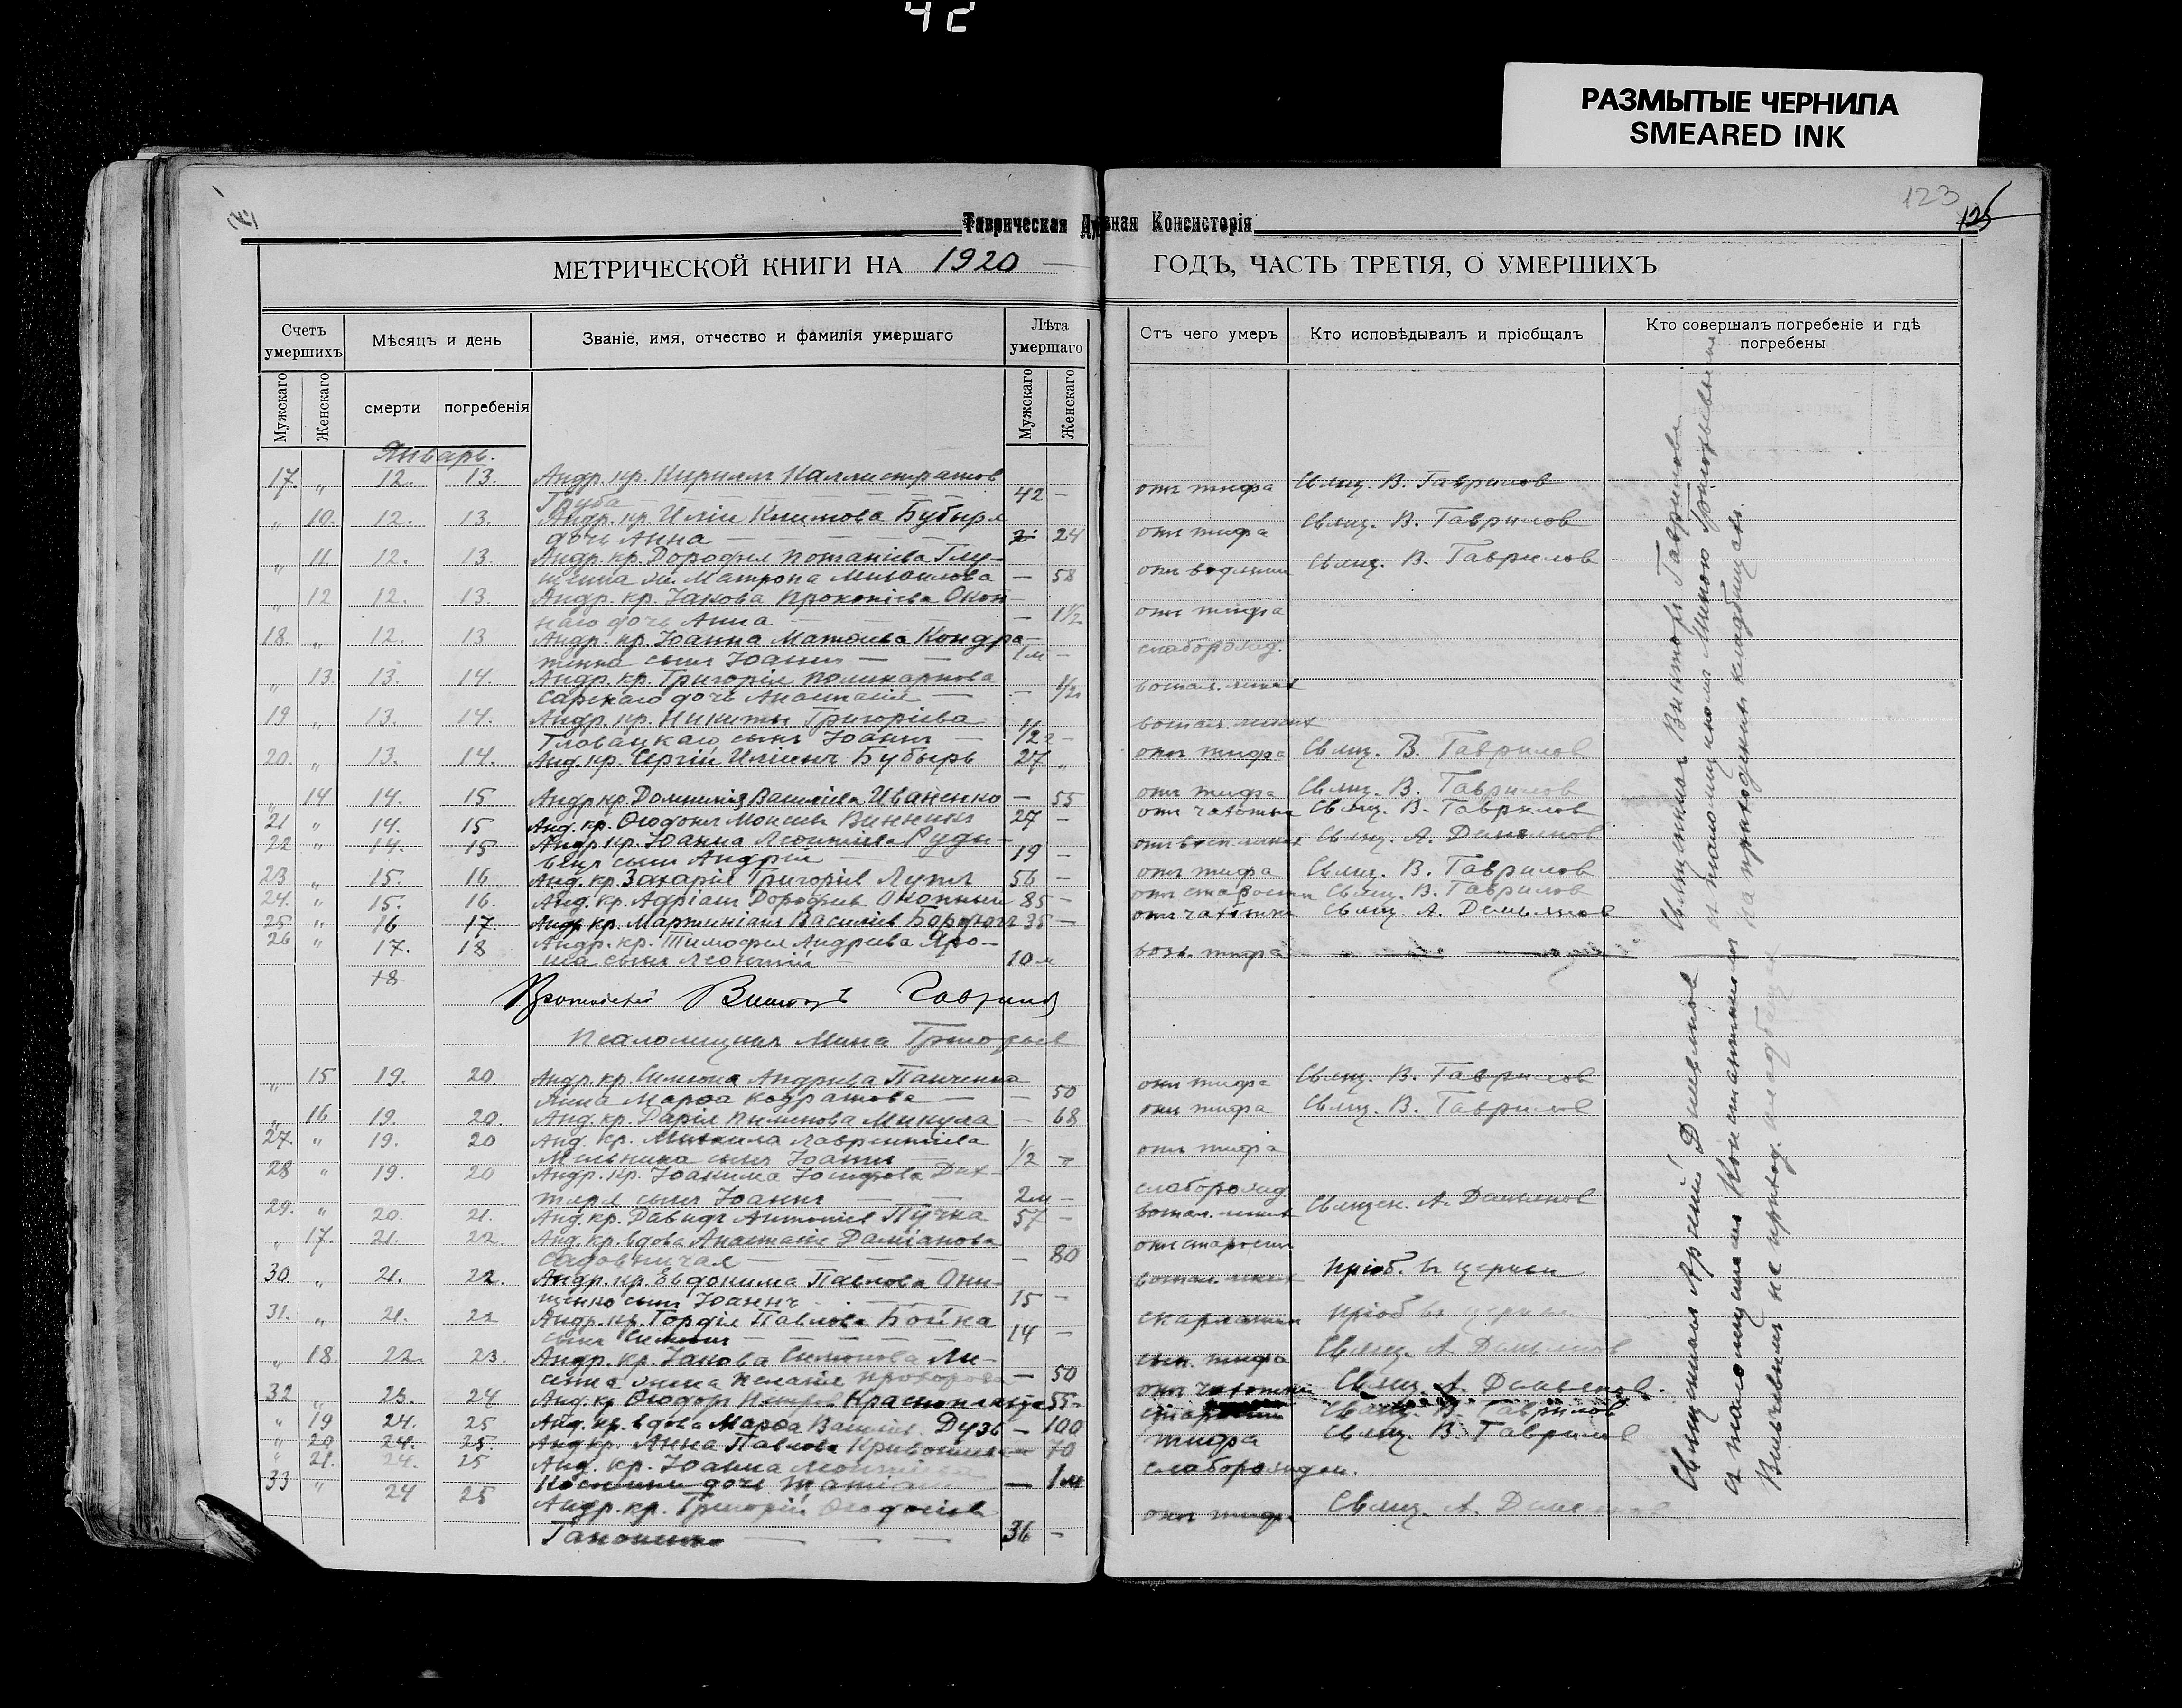 42
РАЗМЫТЫЕ ЧЕРНИЛА
SMEARED INK
123
125
Таврическая Духовная Консисторія
МЕТРИЧЕСКОЙ КНИГИ НА 1920 ГОДЪ, ЧАСТЬ ТРЕТІЯ, О УМЕРШИХЪ
Счетъ умершихъ
Мѣсяцъ и день
Званіе, имя, отчество и фамилія умершаго
Лѣта умершаго
Отъ чего умеръ
Кто исповѣдывалъ и пріобщалъ
Кто совершалъ погребеніе и гдѣ погребены
Мужскаго
Женскаго
смерти
погребенія
Мужскаго
Женскаго
Январь.
17. " 12. 13. Андр. кр. Кириллъ Каллистратов
Груба — 42 — отъ тифа Свящ. В. Гаврилов
" 10. 12. 13. Андр. кр. Иліи Климова Бубыря
дочь Анна — 24 отъ тифа Свящ. В. Гаврилов
" 11. 12. 13. Андр. кр. Дорофея Потапіева Глу-
щенка ж. Матрона Михаилова — 58 отъ водянки Свящ. В. Гаврилов
" 12 12. 13. Андр. кр. Іакова Прокопіева Окоп-
наго дочь Анна — 1 1/2 отъ тифа
18. " 12. 13 Андр. кр. Іоанна Матѳіева Кондра-
тенка сынъ Іоаннъ — 1м — слаборожд.
" 13. 13. 14. Андр. кр. Григорія Поликарпова
Сарскаго дочь Анастасія — 1/2 воспал. легких
19 " 13. 14. Андр. кр. Никиты Григоріева
Гловацкаго сынъ Іоаннъ — 1/2 — воспал. легких
20. " 13. 14. Анд. кр. Сергій Иліинъ Бубырь 27 " отъ тифа Свящ. В. Гаврилов
" 14 14. 15 Андр. кр. Домникія Василіева Иваненко — 55 отъ тифа Свящ. В. Гаврилов
21 " 14. 15 Анд. кр. Ѳеодоръ Моисеев Винник 27 — отъ чахотки Свящ. В. Гаврилов
22 " 14. 15 Андр. кр. Іоанна Леонтіева Руды-
сынъ Андрей 19 — отъ восп. легких Свящ. А. Демьянов
23 " 15. 16 Анд. кр. Захарія Григоріев 56 — отъ тифа Свящ. В. Гаврилов
24. " 15. 16. Анд. кр. Адріанъ Дорофеев Окопный 85 — отъ старости Свящ. В. Гаврилов
25 " 16 17 Андр. кр. Мартиніанъ Василіев 35 — отъ чахотки Свящ. А. Демьянов
26 " 17. 18 Андр. кр. Тимофея Андреева Яро-
ша сынъ Леонтій 10м возв. тифа
18
Протоіерей Викторъ Гаврилов
Псаломщикъ Мина Григорьев
" 15 19. 20. Андр. кр. Симеона Андреева Панченка
жена Марѳа Кодратова — 50 отъ тифа Свящ. В. Гаврилов
" 16 19. 20. Анд. кр. Дарія Пименова Микула — 68 отъ тифа Свящ. В. Гаврилов
27. " 19. 20 Анд. кр. Михаила Лаврентіева
Мельника сынъ Іоаннъ — 1/2 — отъ тифа
28 " 19. 20 Андр. кр. Іоакима Іосифова Дех-
тяря сынъ Іоаннъ 2м — слаборожд
29. " 20. 21. Анд. кр. Давидъ Антоніев Пучка 57 — воспал. легких Священ. А. Демьянов
" 17. 21. 22 Анд. кр. вдова Анастасія Даміанова
Садовничая — 80 отъ старости
30. " 21. 22. Андр. кр. Евдокима Павлова Они-
щенко сынъ Іоаннъ 15 — воспал. легких Пріоб. въ церкви
31. " 21. 22 Андр. кр. Гордія Павлова Бойка
сынъ 14 — скарлатин Пріоб въ церкви
" 18. 22. 23. Андр. кр. Іакова Симеонова Ли-
жена Пелагія Прохорова — 50 сып. тифа Свящ. А. Демьянов
32 " 23. 24 Анд. кр. Ѳеодоръ Петров 55 — отъ чахотки Свящ. А. Демьянов.
" 19 24. 25 Анд. кр. вдова Марѳа Василіев. Дузь — 100 старости Свящ. В. Гаврилов
" 20 24. 25. Анд. кр. Анна Павлова — 70 тифа Свящ. В. Гаврилов
" 21. 24. 25 Анд. кр. Іоанна
дочь — 1м слаборожден.
33 " 24 25 Андр. кр. Григорій Ѳеодосіев
36 — отъ тифа Свящ. А. Демьянов
Священник Викторъ Гаврилов
съ псаломщиком Миною Григорьевым
на приходском кладбищѣ.
Священник Арсеній Демьянов
съ псаломщиком Константином
на приход. кладбищѣ